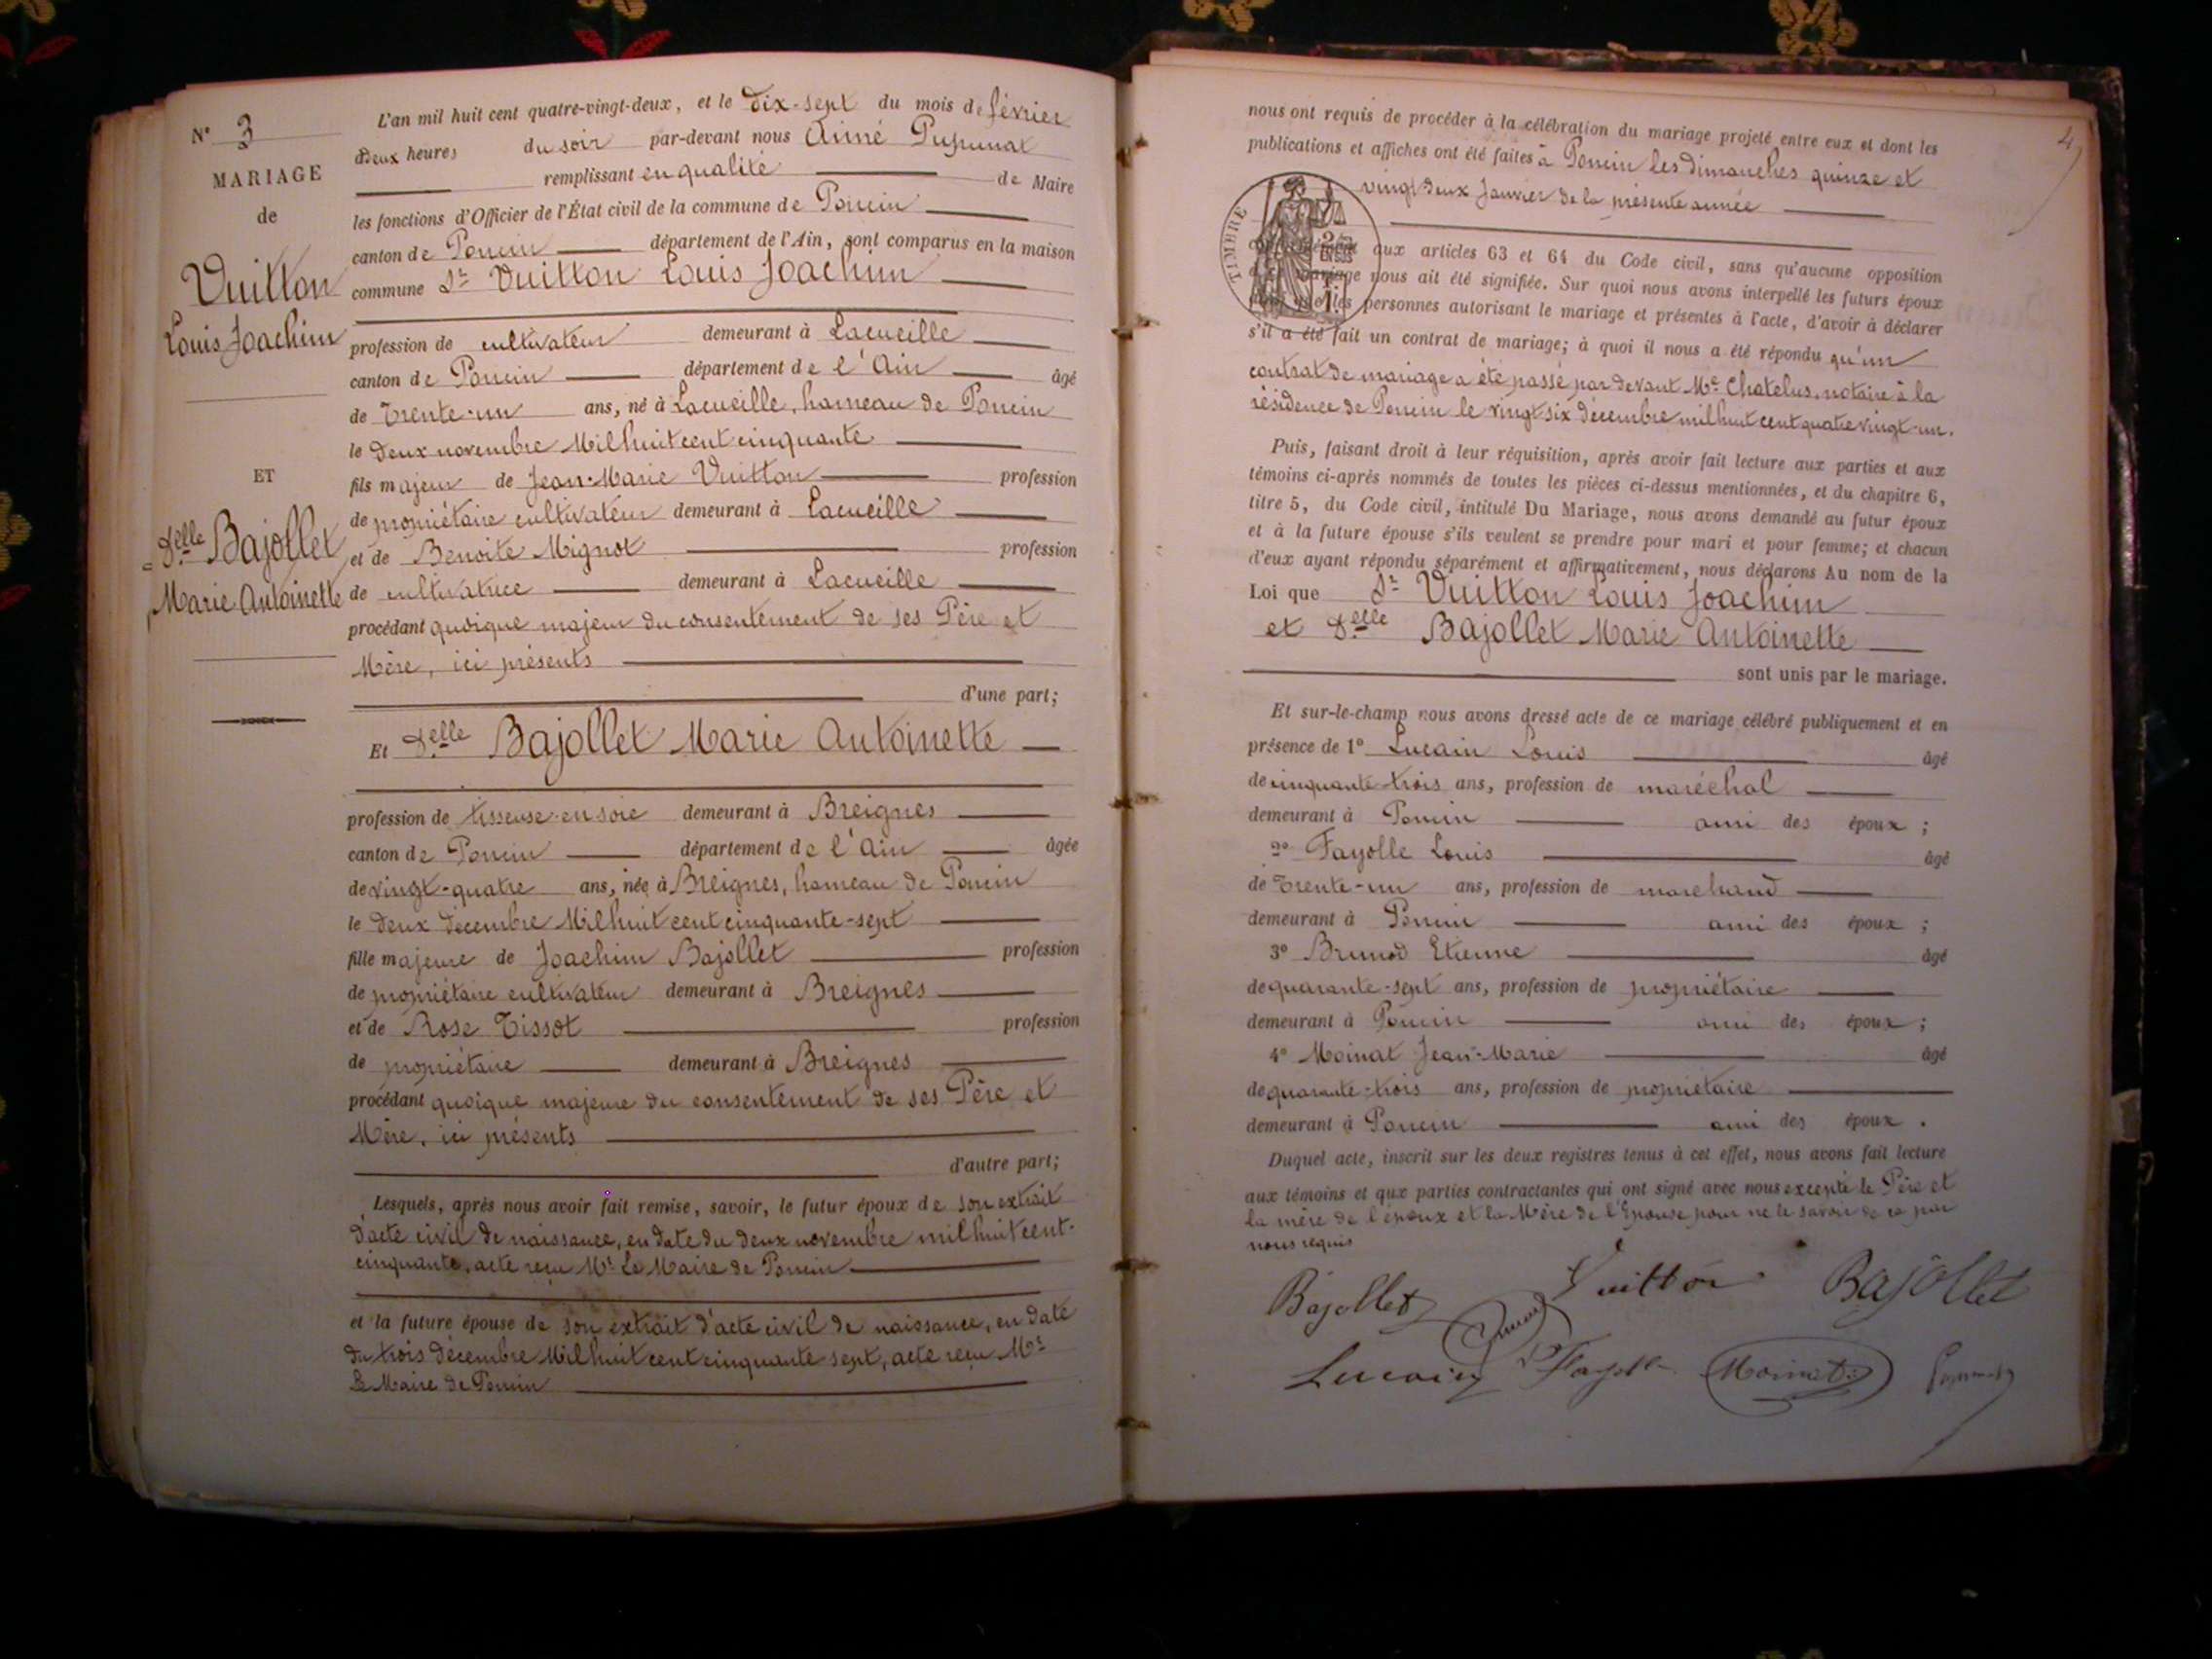 N° 3
MARIAGE
de
Vuitton
Louis Joachim
ET
Delle Bajollet
Marie Antoinette
L'an mil huit cent quatre-vingt-deux, et le dix-sept du mois de février
à deux heures du soir par-devant nous Aimé
remplissant en qualité de Maire
les fonctions d'Officier de l'État civil de la commune de Poncin
canton de Poncin département de l'Ain, sont comparus en la maison
commune Sr Vuitton Louis Joachim
profession de cultivateur demeurant à Lacueille
canton de Poncin département de l'Ain âgé
de trente-un ans, né à Lacueille, hameau de Poncin
le deux novembre Mil huit cent cinquante
fils majeur de Jean-Marie Vuitton profession
de propriétaire cultivateur demeurant à Lacueille
et de Benoite Mignot profession
de cultivatrice demeurant à Lacueille
procédant quoique majeur du consentement de ses Père et
Mère, ici présents
d'une part;
Et Delle Bajollet Marie Antoinette
profession de tisseuse en soie demeurant à Breignes
canton de Poncin département de l'Ain âgée
de vingt-quatre ans, née à Breignes, hameau de Poncin
le deux décembre Mil huit cent cinquante-sept
fille majeure de Joachim Bajollet profession
de propriétaire cultivateur demeurant à Breignes
et de Rose Tissot profession
de propriétaire demeurant à Breignes
procédant quoique majeure du consentement de ses Père et
Mère, ici présents
d'autre part;
Lesquels, après nous avoir fait remise, savoir, le futur époux de son extrait
d'acte civil de naissance, en date du deux novembre mil huit cent-
cinquante, acte reçu Mr Le Maire de Poncin
et la future épouse de son extrait d'acte civil de naissance, en date
du trois décembre Mil huit cent cinquante sept, acte reçu Mr
Le Maire de Poncin
4
nous ont requis de procéder à la célébration du mariage projeté entre eux et dont les
publications et affiches ont été faites à Poncin les dimanches quinze et
vingt deux Janvier de la présente année
TIMBRE
aux articles 63 et 64 du Code civil, sans qu'aucune opposition
mariage nous ait été signifiée. Sur quoi nous avons interpellé les futurs époux
les personnes autorisant le mariage et présentes à l'acte, d'avoir à déclarer
s'il a été fait un contrat de mariage; à quoi il nous a été répondu qu'un
contrat de mariage a été passé par devant Me Chatelus, notaire à la
résidence de Poncin le vingt six décembre mil huit cent quatre vingt-un.
Puis, faisant droit à leur réquisition, après avoir fait lecture aux parties et aux
témoins ci-après nommés de toutes les pièces ci-dessus mentionnées, et du chapitre 6,
titre 5, du Code civil, intitulé Du Mariage, nous avons demandé au futur époux
et à la future épouse s'ils veulent se prendre pour mari et pour femme; et chacun
d'eux ayant répondu séparément et affirmativement, nous déclarons Au nom de la
Loi que Sr Vuitton Louis Joachim
et Delle Bajollet Marie Antoinette
sont unis par le mariage.
Et sur-le-champ nous avons dressé acte de ce mariage célébré publiquement et en
présence de 1° Lucain Louis âgé
de cinquante-trois ans, profession de maréchal
demeurant à Poncin ami des époux ;
2° Fayolle Louis âgé
de trente-un ans, profession de marchand
demeurant à Poncin ami des époux ;
3° Brunod Etienne âgé
de quarante-sept ans, profession de propriétaire
demeurant à Poncin ami des époux ;
4° Moinat Jean-Marie âgé
de quarante-trois ans, profession de propriétaire
demeurant à Poncin ami des époux .
Duquel acte, inscrit sur les deux registres tenus à cet effet, nous avons fait lecture
aux témoins et aux parties contractantes qui ont signé avec nous excepté le Père et
la mère de l'époux et la Mère de l'Epouse pour ne le savoir de ce par
nous requis
Bajollet Vuitton Bajollet
Lucain Fayolle Moinat